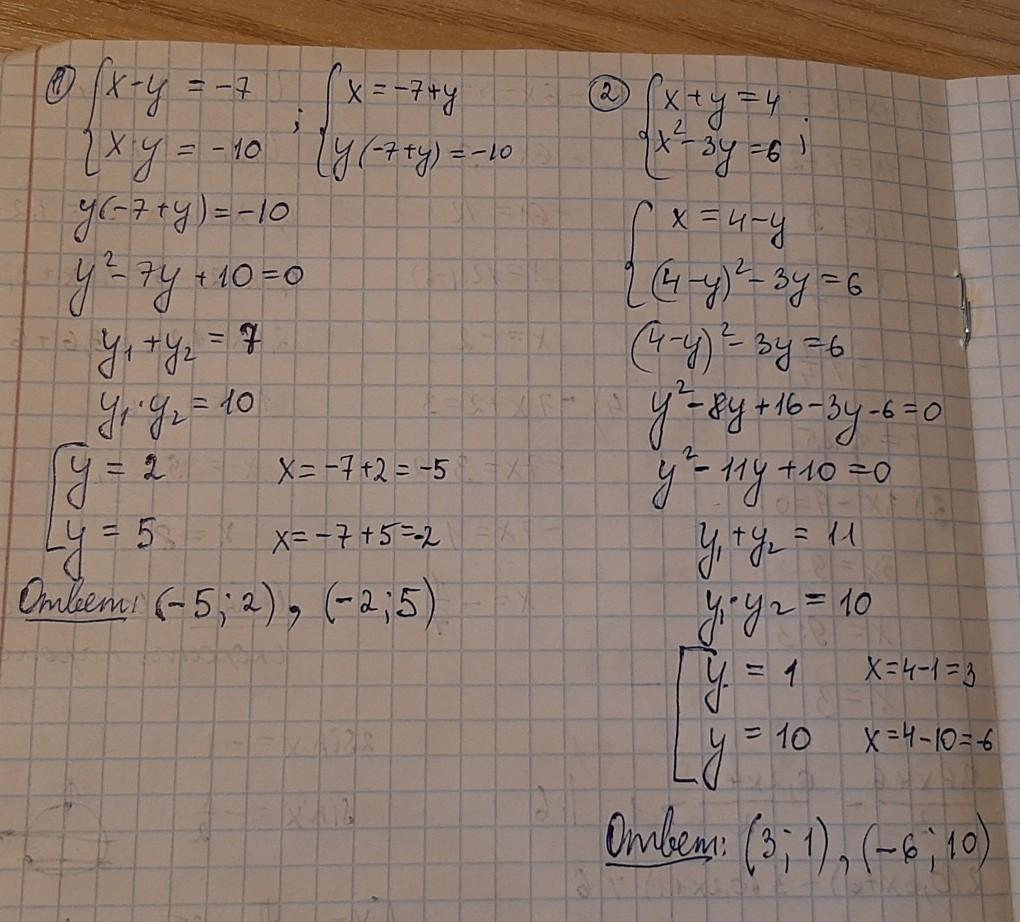 ① { x - y = -7
x · y = -10 ;
{ x = -7+y
y(-7+y) = -10
y(-7+y) = -10
y² - 7y + 10 = 0
y₁ + y₂ = 7
y₁ · y₂ = 10
[ y = 2 x = -7+2 = -5
y = 5 x = -7+5=-2
Ответ: (-5; 2), (-2; 5)
② { x + y = 4
x² - 3y = 6 ;
{ x = 4-y
(4-y)² - 3y = 6
(4-y)² - 3y = 6
y² - 8y + 16 - 3y - 6 = 0
y² - 11y + 10 = 0
y₁ + y₂ = 11
y₁ · y₂ = 10
[ y = 1 x = 4-1 = 3
y = 10 x = 4-10 = -6
Ответ: (3; 1), (-6; 10)